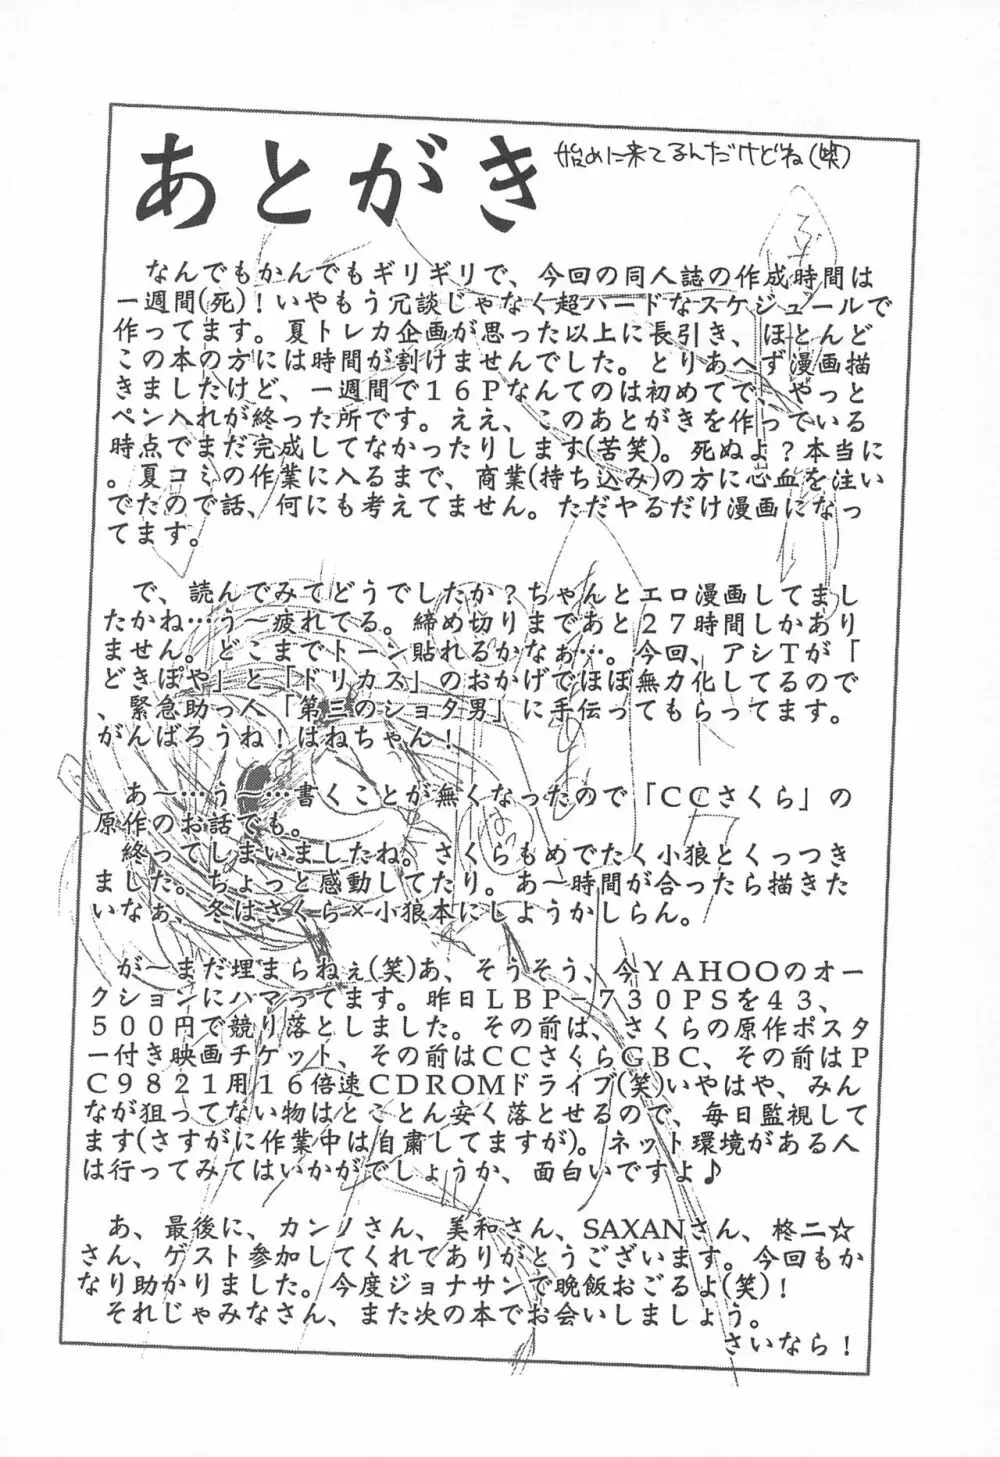 あとがき
始めに来てるんだけどね(笑)
なんでもかんでもギリギリで、今回の同人誌の作成時間は
一週間(死)！いやもう冗談じゃなく超ハードなスケジュールで
作ってます。夏トレカ企画が思った以上に長引き、ほとんど
この本の方には時間が割けませんでした。とりあへず漫画描
きましたけど、一週間で１６Ｐなんてのは初めてで、やっと
ペン入れが終った所です。ええ、このあとがきを作っている
時点でまだ完成してなかったりします(苦笑)。死ぬよ？本当に
。夏コミの作業に入るまで、商業(持ち込み)の方に心血を注い
でたので話、何にも考えてません。ただヤるだけ漫画になっ
てます。
で、読んでみてどうでしたか？ちゃんとエロ漫画してまし
たかね…う〜疲れてる。締め切りまであと２７時間しかあり
ません。どこまでトーン貼れるかなぁ…。今回、アシＴが「
どきぽや」と「ドリカス」のおかげでほぼ無力化してるので
、緊急助っ人「第三のショタ男」に手伝ってもらってます。
がんばろうね！はねちゃん！
あ〜…う〜…書くことが無くなったので「ＣＣさくら」の
原作のお話でも。
終ってしまいましたね。さくらもめでたく小狼とくっつき
ました。ちょっと感動してたり。あ〜時間が合ったら描きた
いなぁ、冬はさくら×小狼本にしようかしらん。
が〜まだ埋まらねぇ(笑)あ、そうそう、今ＹＡＨＯＯのオー
クションにハマってます。昨日ＬＢＰ−７３０ＰＳを４３、
５００円で競り落としました。その前は、さくらの原作ポスタ
ー付き映画チケット、その前はＣＣさくらＧＢＣ、その前はＰ
Ｃ９８２１用１６倍速ＣＤＲＯＭドライブ(笑)いやはや、みん
なが狙ってない物はとことん安く落とせるので、毎日監視して
ます(さすがに作業中は自粛してますが)。ネット環境がある人
は行ってみてはいかがでしょうか、面白いですよ♪
あ、最後に、カンノさん、美和さん、SAXANさん、柊二☆
さん、ゲスト参加してくれてありがとうございます。今回もか
なり助かりました。今度ジョナサンで晩飯おごるよ(笑)！
それじゃみなさん、また次の本でお会いしましょう。
さいなら！